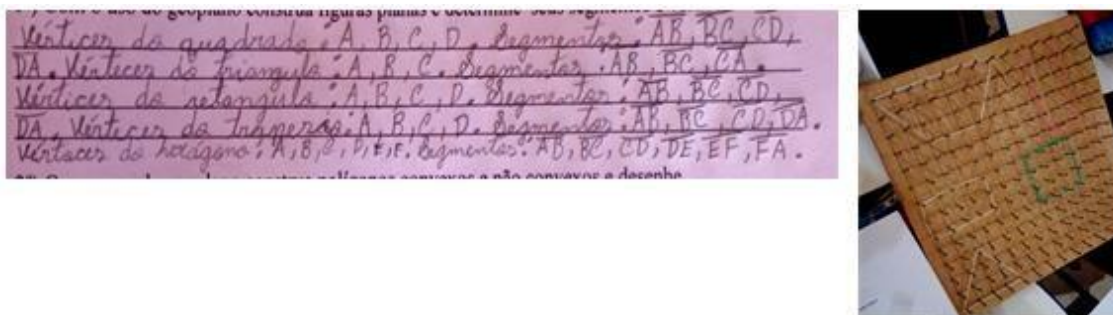 1º) Com o uso do geoplano construa figuras planas e determine seus segmentos
Vértices do quadrado: A, B, C, D. Segmentos: AB, BC, CD,
DA. Vértices do triangulo: A, B, C. Segmentos: AB, BC, CA.
Vérticies do retangulo: A, B, C, D. Segmentos: AB, BC, CD,
DA, Vértices do trapezio: A, B, C, D. Segmentos: AB, BC, CD, DA.
Vértices do hexágono: A, B, C, D, E, F. Segmentos: AB, BC, CD, DE, EF, FA.
construa polígonos convexos e não convexos e desenhe